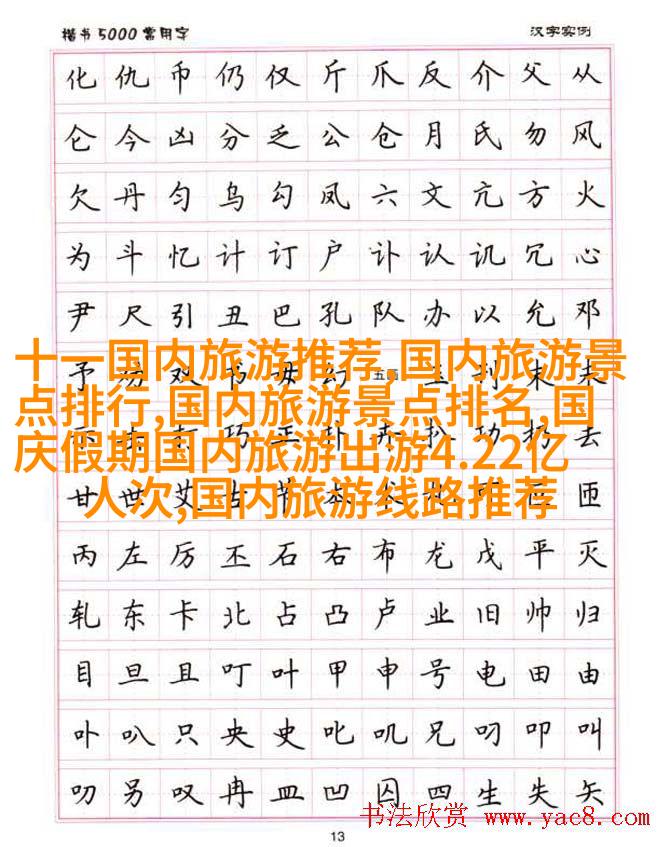 楷书5000常用字 汉字实例
化 仇 币 仍 仅 斤 爪 反 介 父 从
仑 今 凶 分 乏 公 仓 月 氏 勿 风
欠 丹 匀 乌 勾 凤 六 文 亢 方 火
为 斗 忆 计 订 户 讣 认 讥 冗 心
尹 尺 引 丑 巴 孔 队 办 以 允 邓
予 双 书 毋 幻 五画 玉 刊 末 未
十一国内旅游推荐,国内旅游景
点排行,国内旅游景点排名,国
庆假期国内旅游出游4.22亿
人次,国内旅游线路推荐
巧 功 扔 去
甘 世 艾 古 节 匝
丙 左 厉 丕 石 右 布 龙 戊 平 灭
轧 东 卡 北 占 凸 卢 业 旧 帅 归
目 旦 且 叮 叶 甲 申 号 电 田 由
卟 叭 只 央 史 叱 叽 兄 叼 叩 叫
叻 另 叹 冉 皿 凹 囚 四 生 失 矢
书法欣赏 www.yac8.com
13